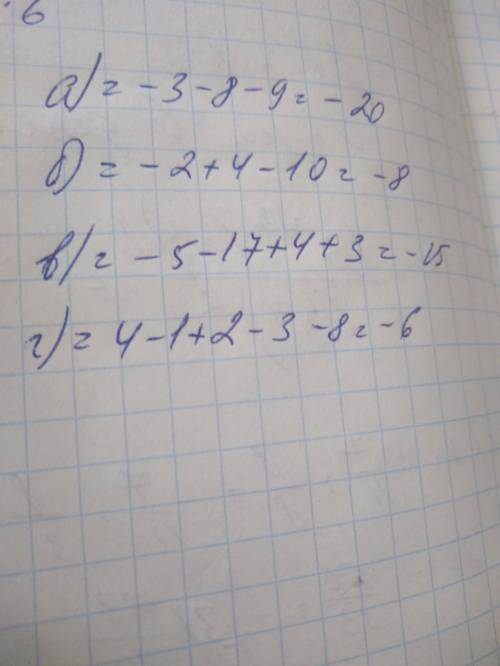 6
а) = -3-8-9= -20
б) = -2+4-10= -8
в) = -5-17+4+3=-15
г) = 4-1+2-3-8=-6